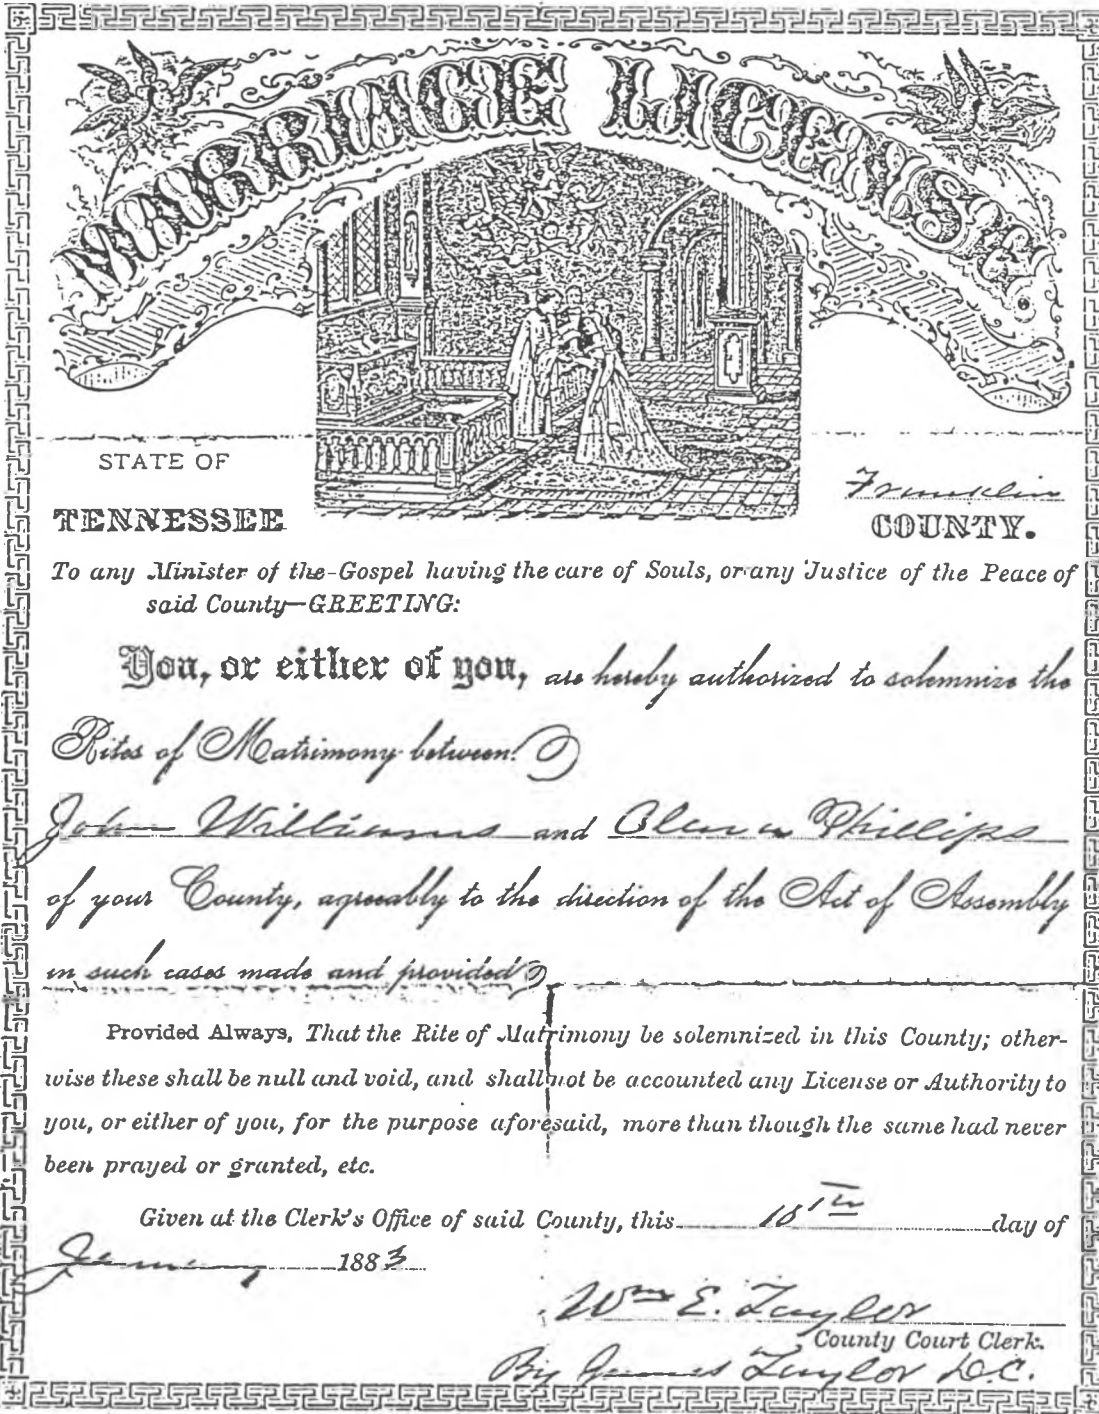 MARRIAGE LICENSE
STATE OF
TENNESSEE
Franklin
COUNTY.
To any Minister of the Gospel having the care of Souls, or any Justice of the Peace of
said County—GREETING:
You, or either of you, are hereby authorized to solemnize the
Rites of Matrimony between
John Williams and Phillips
of your County, agreeably to the direction of the Act of Assembly
in such cases made and provided
Provided Always, That the Rite of Matrimony be solemnized in this County; other-
wise these shall be null and void, and shall not be accounted any License or Authority to
you, or either of you, for the purpose aforesaid, more than though the same had never
been prayed or granted, etc.
Given at the Clerk's Office of said County, this day of
January 1883
Wm E. Taylor
County Court Clerk.
By James Taylor D.C.